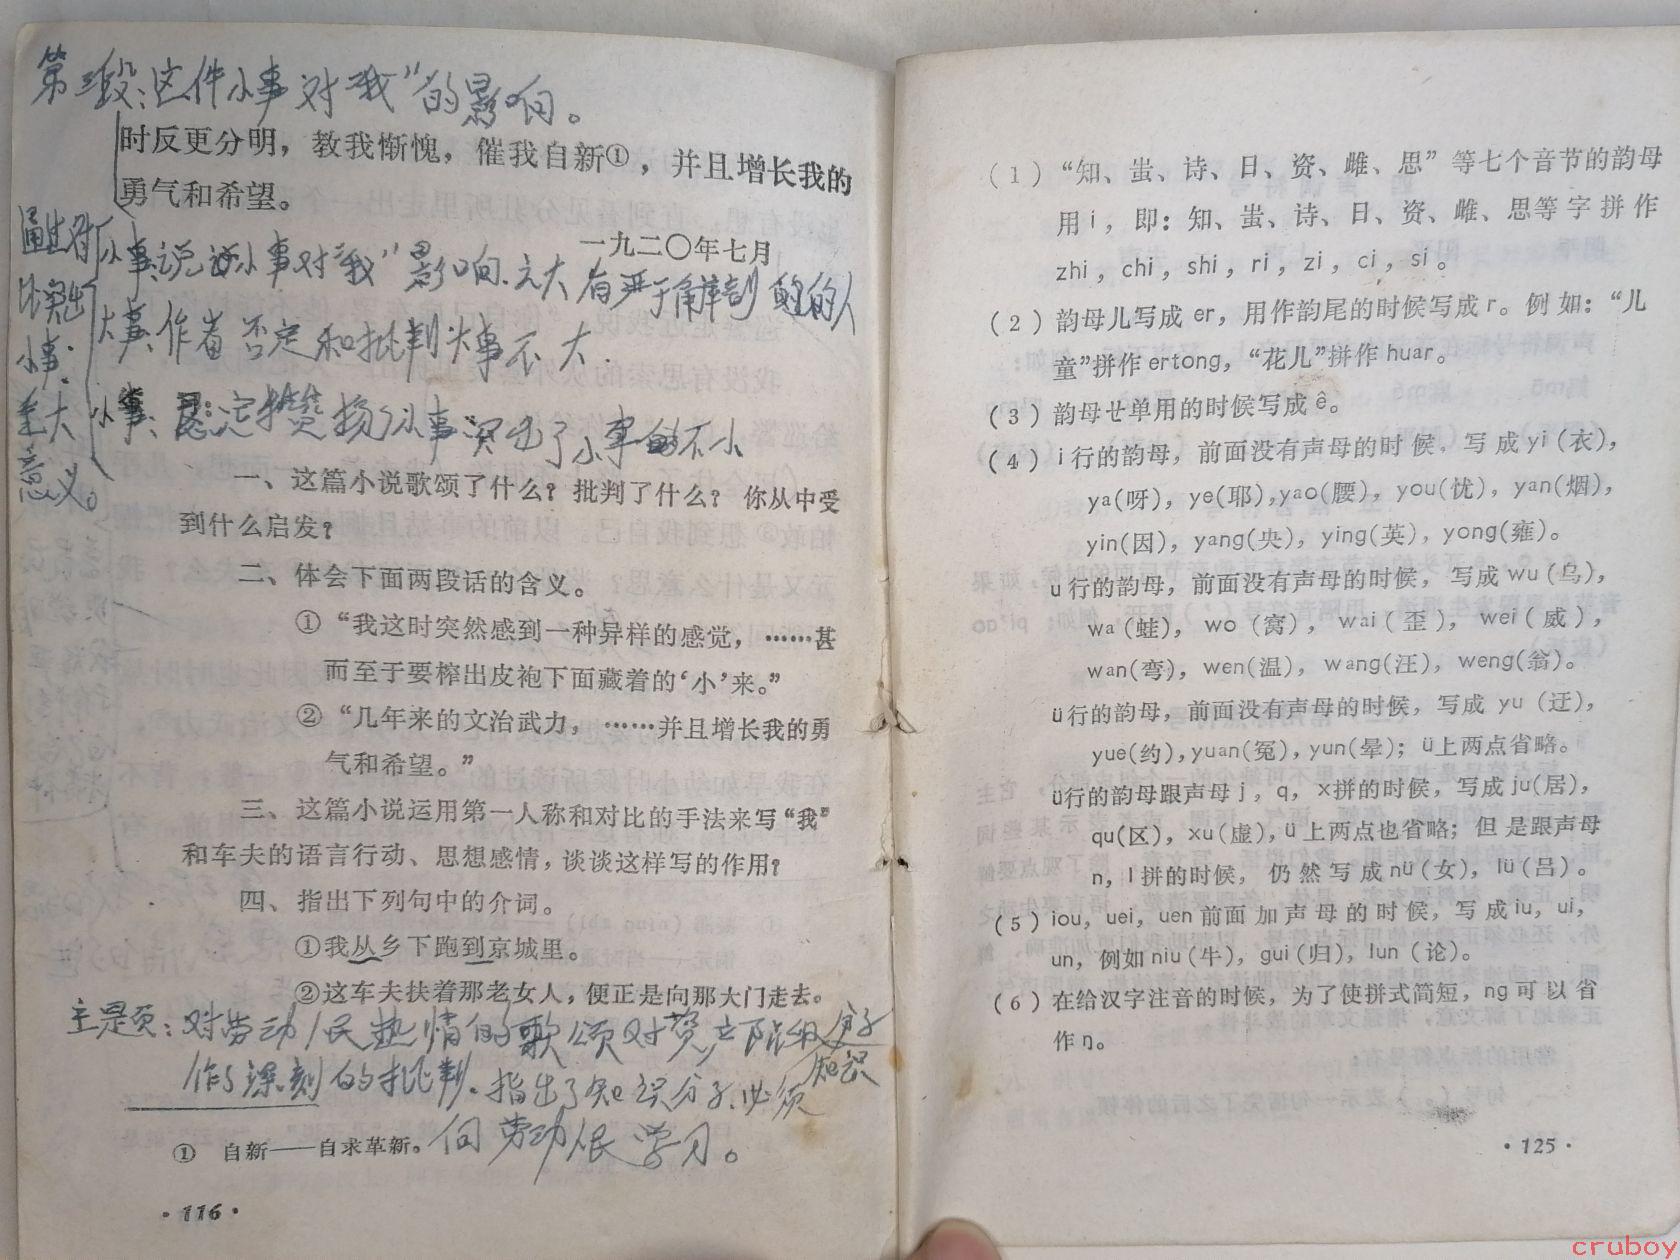 第三段：这件小事对“我”的影响。
时反更分明，教我惭愧，催我自新①，并且增长我的
勇气和希望。
一九二〇年七月
小事：说这小事对“我”影响之大 有严于解剖 的人
大事：作者否定和批判大事不大.
小事： 赞扬了小事 突出了小事的不小
小事.
重大
意义。
一、这篇小说歌颂了什么？批判了什么？ 你从中受
到什么启发？
二、体会下面两段话的含义。
①“我这时突然感到一种异样的感觉，……甚
而至于要榨出皮袍下面藏着的‘小’来。”
②“几年来的文治武力，……并且增长我的勇
气和希望。”
三、这篇小说运用第一人称和对比的手法来写“我”
和车夫的语言行动、思想感情，谈谈这样写的作用？
四、指出下列句中的介词。
①我从乡下跑到京城里。
②这车夫扶着那老女人，便正是向那大门走去。
主是页：对劳动人民热情的歌颂对资产阶级分子
知识
作了深刻的批判。指出了知识分子必须
向劳动人民学习。
① 自新——自求革新。
·116·
（1）“知、蚩、诗、日、资、雌、思”等七个音节的韵母
用i，即：知、蚩、诗、日、资、雌、思等字拼作
zhi，chi，shi，ri，zi，ci，si。
（2）韵母儿写成er，用作韵尾的时候写成r。例如：“儿
童”拼作ertong，“花儿”拼作huar。
（3）韵母ㄝ单用的时候写成ê。
（4）i行的韵母，前面没有声母的时候，写成yi（衣），
ya(呀)，ye(耶),yao(腰)，you(忧)，yan(烟)，
yin(因)，yang(央)，ying(英)，yong(雍)。
u行的韵母，前面没有声母的时候，写成wu（乌），
wa（蛙），wo（窝），wai（歪），wei（威），
wan(弯)，wen(温)，wang(汪)，weng(翁)。
ü行的韵母，前面没有声母的时候，写成 yu（迂），
yue(约),yuan(冤)，yun(晕)；ü上两点省略。
ü行的韵母跟声母j，q，x拼的时候，写成ju(居)，
qu(区)，xu(虚)，ü上两点也省略；但是跟声母
n，l拼的时候，仍然写成nü（女），lü（吕）。
（5）iou，uei，uen前面加声母的时候，写成iu，ui，
un，例如niu（牛），gui（归），lun（论）。
（6）在给汉字注音的时候，为了使拼式简短，ng可以省
作ŋ。
·125·
cruboy